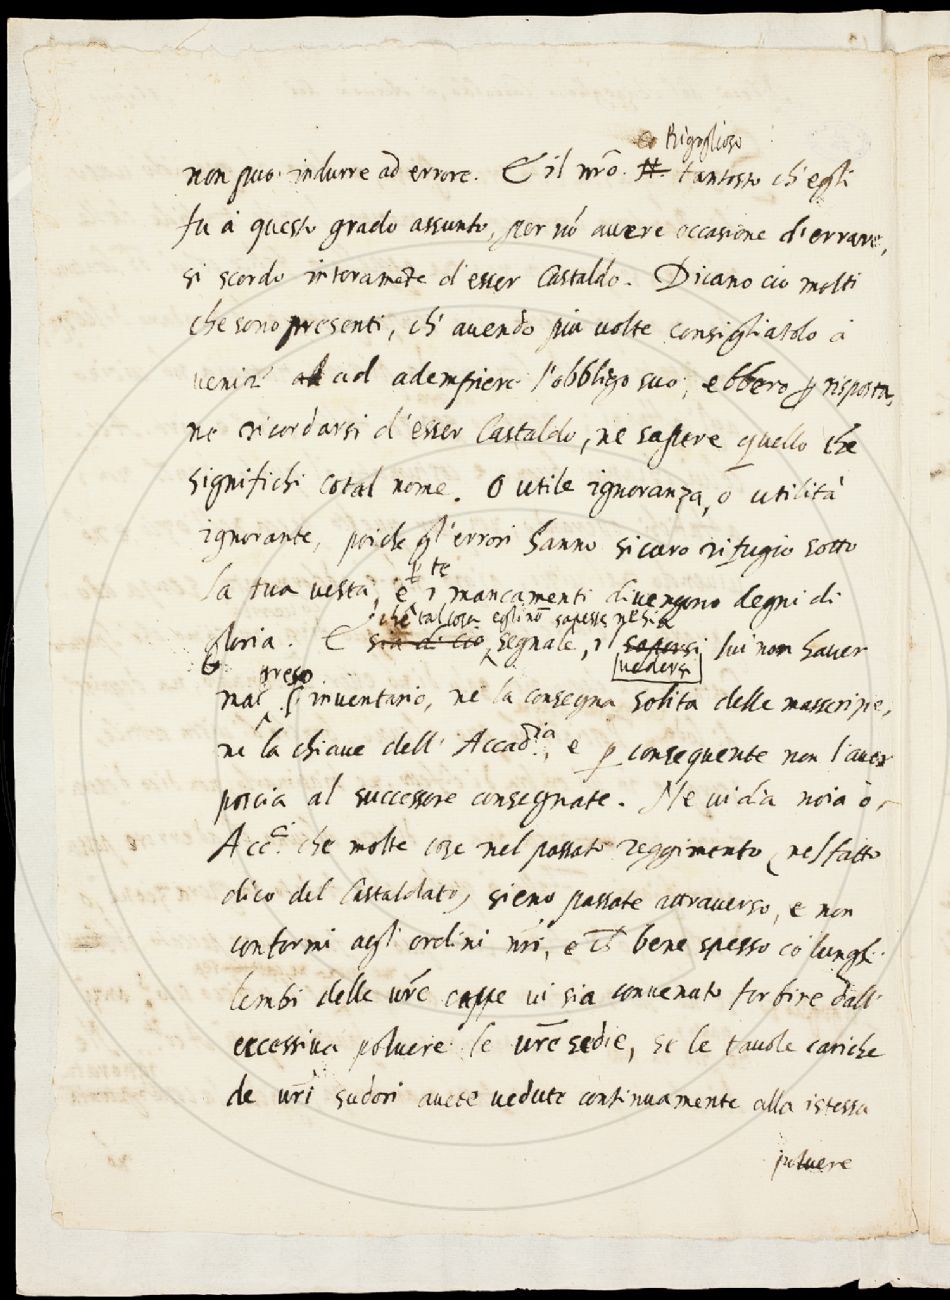 Rigoglioso
non puo indurre ad errore. E il nr̃o. #. tantosto ch'egli
fu à questo grado assunto, per nõ avere occasione d'errare,
si scordò interamẽte d'esser Castaldo. Dicano ciò molti
che sono presenti, ch'avendo più volte consigliatolo à
venir ad adempiere l'obbligo suo, ebbero ꝑ risposta,
ne ricordarsi d'esser Castaldo, ne sapere quello che
significhi cotal nome. O utile ignoranza, o utilità
ignorante, poiche gl'errori hanno sicuro rifugio sotto
la tua vesta, e ꝑ te i mancamenti divengono degni di
che tal cosa egli nõ sapesse ne sia
gloria. E sia di ciò segnale, il sapersi lui non haver
vedersi
preso
mai l'inventario, ne la consegna solita delle masserizie,
ne la chiave dell'Accad.ia, e ꝑ conseguente non l'aver
poscia al successore consegnate. Ne vi dia noia ò
Acc.ci che molte cose nel passato reggimento (nel fatto
dico del Castaldato) sieno passate attraverso, e non
conformi agl'ordini nr̃i, e ch̃ bene spesso cõ lunghi
lembi delle vr̃e cappe vi sia convenuto forbire dall'
eccessiva polvere le vr̃e sedie, se le tavole cariche
de vr̃i sudori avete vedute continuamente alla istessa
polvere